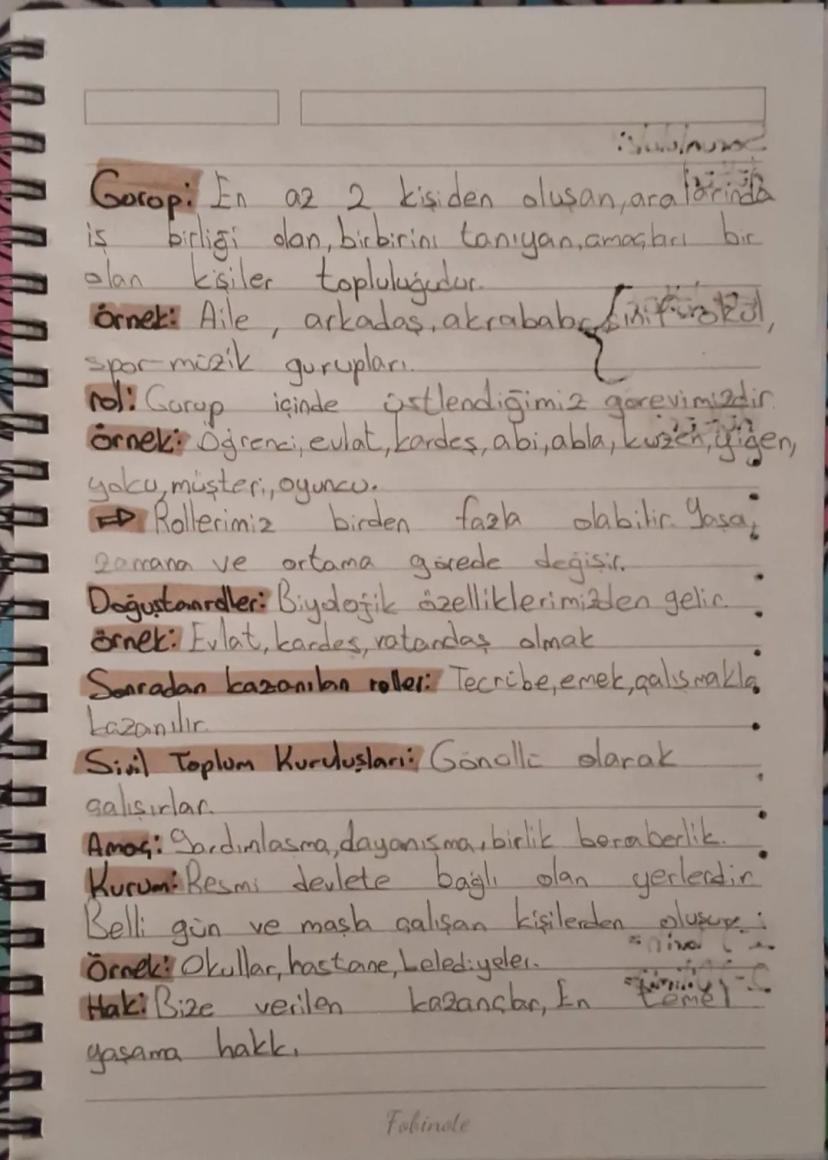 Gurup: En az 2 kişiden oluşan, aralarında
iş birliği olan, birbirini tanıyan, amaçları bir
olan kişiler topluluğudur.
Örnek: Aile, arkadaş, akrabalar,
spor-müzik gurupları.
rol: Gurup içinde üstlendiğimiz görevimizdir.
Örnek: Öğrenci, evlat, kardeş, abi, abla, kuzen, yiğen,
yolcu, müşteri, oyuncu.
⇨ Rollerimiz birden fazla olabilir. Yaşa,
zamana ve ortama görede değişir.
Doğuştanroller: Biyolojik özelliklerimizden gelir.
Örnek: Evlat, kardeş, vatandaş olmak
Sonradan kazanılan roller: Tecrübe, emek, çalışmakla
kazanılır.
Sivil Toplum Kuruluşları: Gönüllü olarak
çalışırlar.
Amaç: Yardımlaşma, dayanışma, birlik beraberlik.
Kurum: Resmi devlete bağlı olan yerlerdir
Belli gün ve maaşla çalışan kişilerden oluşur.
Örnek: Okullar, hastane, belediyeler.
Hak: Bize verilen kazançlar, En temel
yaşama hakkı
Fabinote